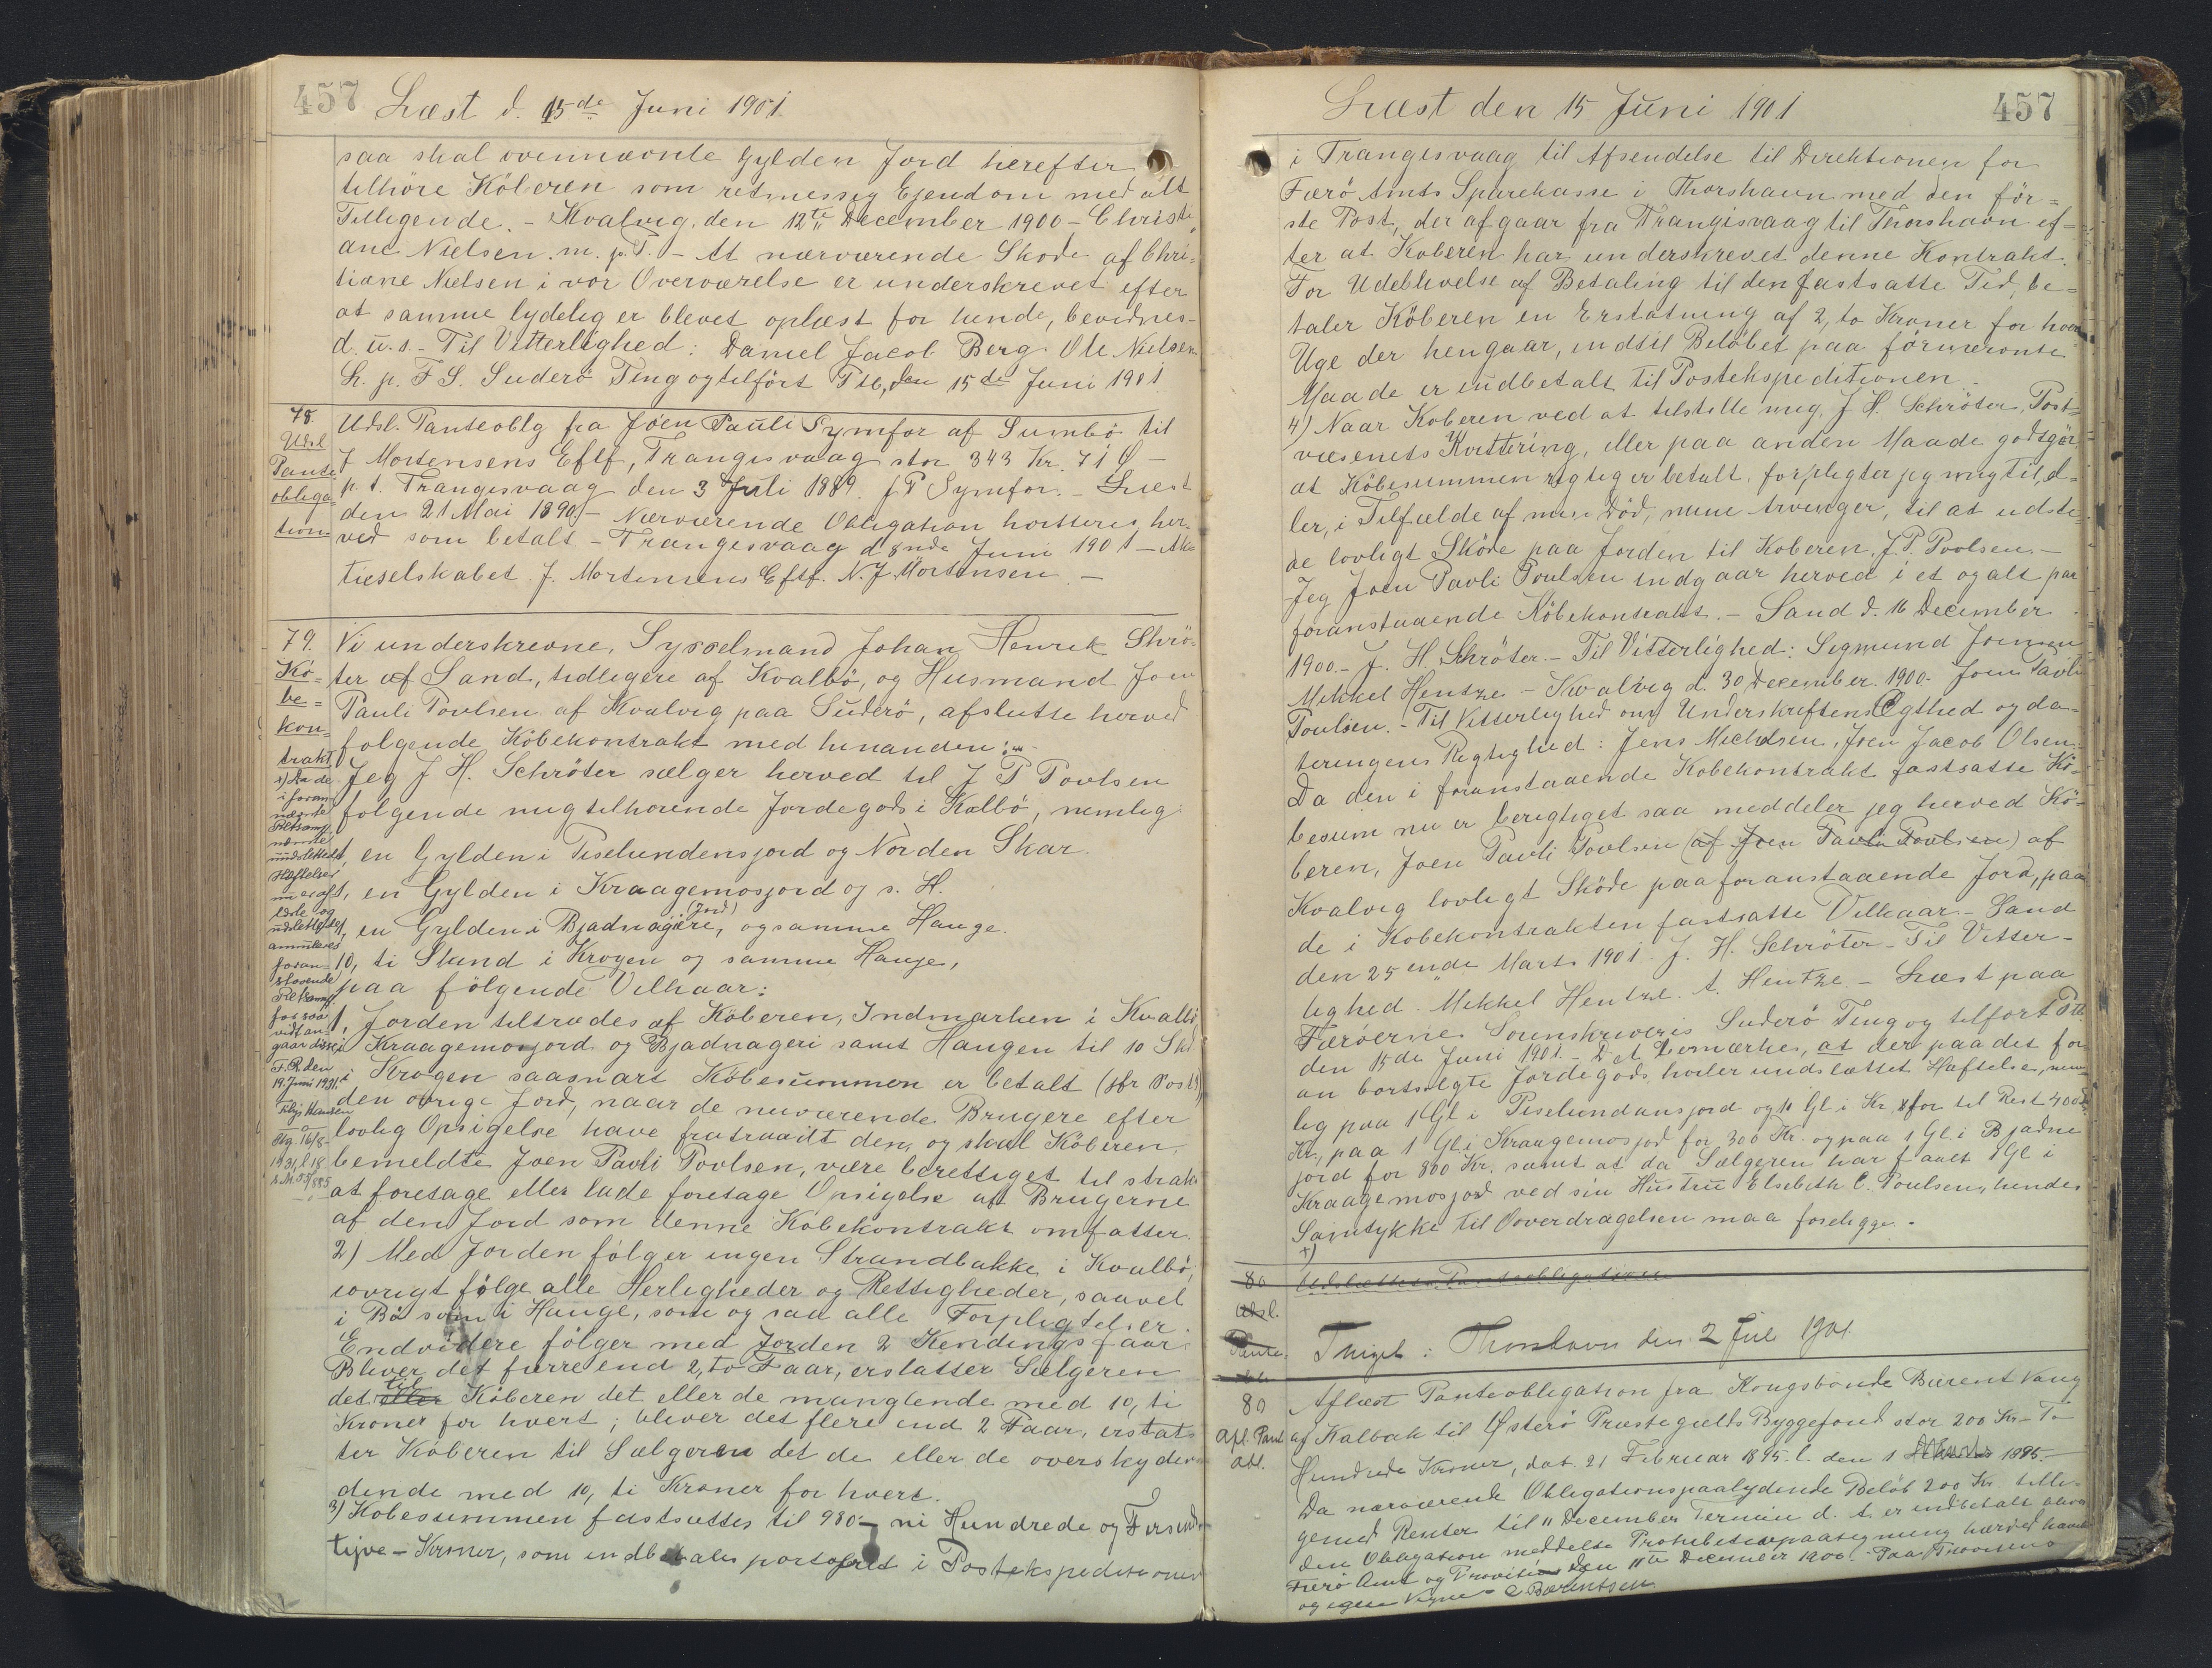 457 Læst d. 15de Juni 1901.
saa skal ovennævnte Gylden Jord herefter
tilhøre Köberen som retmessig Ejendom med alt
Tilligende. - Kvalvig, den 12te December 1900 - Christi
ane Nielsen. m. p. P. - At nærværende Skøde af Chri=
tiane Nielsen i vor Overværelse er underskrevet efter
at samme lydelig er blevet oplæst for hende, bevidnes-
d. u. s. - Til Vitterlighed: Daniel Jacob Berg. Ole Nielsen
L. p. F S. Suderö Ting og tilført Ptb, den 15de Juni 1901
78.
Udsl.
Pante
obliga
tion
Udsl. Panteoblg fra Jóen Pauli Symfor af Sumbö til
J Mortensens Eftf, Trangisvaag stor 343 Kr. 71 Ø -
p. t. Trangisvaag den 3 Juli 1889. J P Symfor. - Læst
den 21 Mai 1890. - Nærværende Obligation kvitteres her
ved som betalt - Trangisvaag d 8nde Juni 1901 - Ak
tieselskabet J. Mortensens Eftf. N. J. Mortensen -
79.
Kö=
be=
kon=
trakt
Vi underskrevne, Sysselmand Johan Henrik Skrö-
ter af Sand, tidligere af Kvalbö, og Husmand Joen
Pauli Poulsen af Kvalvig paa Suderö, afslutte herved
folgende Köbekontrakt med hinanden:
Jeg J H. Schröter sælger herved til J P Poulsen
folgende mig tilhorende Jordegods i Kvalbö, nemlig:
1, en Gylden i Piselundensjord og Norden Skar.
1, en Gylden i Kraagemosjord og s. H.
(Jord)
1, en Gylden i Bjadnagere, og samme Hauge.
10, ti Skind i Krogen og samme Hauge,
paa følgende Vilkaar:
1, Jorden tiltrædes af Köberen, Indmarken i Kvalbö
i Kraagemosjord og Bjadnageri samt Haugen til 10 Skd
i Krogen saasnart Köbesummen er betalt (jfr Post 3)
den øvrige Jord, naar de nuværende Brugere efter
lovlig Opsigelse have fratraadt den, og skal Köberen,
bemeldte Joen Pauli Poulsen, være berettiget til straks
at foretage eller lade foretage Opsigelse af Brugerne
af den Jord som denne Köbekontrakt omfatter.
2) Med Jorden følger ingen Strandbakke i Kvalbö,
iovrigt følge alle Herligheder og Rettigheder, saavel
i Bö som i Hauge, som og saa alle Forpligtelser
Endvidere følger med Jorden 2 Kendings faar.
Bliver det færre end 2, to Faar, erstatter Sælgeren
det til Köberen det eller de manglende med 10, ti
Kroner for hvert; bliver det flere end 2 Faar, erstat=
ter Köberen til Sælgeren det de eller de overskyden
dende med 10, ti Kroner for hvert.
3) Köbesummen fastsættes til 980 - ni Hundrede og Firsinds
tyve - Kroner, som indbetales portofrit i Postekspeditionen
1) Da de
i foran
nævnte
Retsanm.
nævnte
uudslettede
Hæftelser
nu er af
læste og
udslettede
annulleres
foran=
staaende
Retsanm.
for saa
vidt an-
gaar disse
F. R. den
19. Juni 1931.
Læst den 15 Juni 1901
457
i Trangisvaag til Afsendelse til Direktionen for
Færö Amts Sparekasse i Thorshavn med den för=
ste Post, der afgaar fra Trangisvaag til Thorshavn ef=
ter at Köberen har underskrevet denne Kontrakt.
For Udeblivelse af Betaling til den fastsatte Tid, be=
taler Köberen en Erstatning af 2, to Kroner for hver
Uge der hengaar, indtil Beløbet paa förnævnte
Maade er indbetalt til Postekspeditionen.
4) Naar Köberen ved at tilstille mig, J H. Schröter, Post=
væsenets Kvittering, eller paa anden Maade godtgör
at Köbesummen rigtig er betalt, forpligter jeg mig til, el=
ler, i Tilfælde af min Död, mine Arvinger, til at udste
de lovligt Skøde paa Jorden til Köberen J. P. Poulsen. -
Jeg Joen Pauli Poulsen indgaar herved i et og alt paa
foranstaaende Köbekontrakt. - Sand d. 16 December
1900 - J. H. Schröter. - Til Vitterlighed: Sigmund Joensen
Mikkel Hentze - Kvalvig d. 30 December. 1900. Joen Pauli
Poulsen. - Til Vitterlighed om Underskriftens Ægthed og da=
teringens Rigtighed: Jens Michelsen, Joen Jacob Olsen.
Da den i foranstaaende Köbekontrakt fastsatte Kö=
besum nu er berigtiget saa meddeler jeg herved Kö=
beren, Joen Pauli Poulsen (af Joen Pauli Poulsen) af
Kvalvig lovligt Sköde paa foranstaaende Jord, paa
de i Köbekontrakten fastsatte Vilkaar - Sand
den 25ende Marts 1901. J. H. Schröter - Til Vitter-
lighed. Mikkel Hentze. A. Hentze. - Læst paa
Færöernes Sorenskriveris Suderö Ting og tilført Ptb.
den 15de Juni 1901. - Det bemærkes, at der paa det for
an bortsolgte Jordegods hviler uudslettet Hæftelse, nem
lig paa 1 Gl i Piselundensjord og 1 Gl. i Kr. for til Rest 400
Kr., paa 1 Gl. i Kraagemosjord for 300 Kr. og paa 1 Gl. i Bjadne
jord for 800 Kr. samt at da Sælgeren har faaet 1 Gl i
Kraagemosjord ved sin Hustru Elsebeth C. Poulsen, hendes
Samtykke til Overdragelsen maa foreligge. -
+)
80 Udslettes Panteobligation
Udsl.
Pante-
Tinget i Thorshavn den 2 Juli 1901.
80
Afl. Pant
obl.
Aflæst Panteobligation fra Kongsbonde Barent Vang
af Kalbak til Østerö Præstegjælds Byggefond stor 200 Kr - To
Hundrede Kroner, dat. 21 Februar 1895. l. den 1 1895. -
Da nærværende Obligations paalydende Beløb 200 Kr tilli-
gemed Renter til 11 December Termin d. A. er indbetalt
den Obligation meddelte Prohibitivpaategning herved hævet
Færö Amt og Provsti den 11te December 1900. Paa Provstens
og egne Vegne C Bærentsen